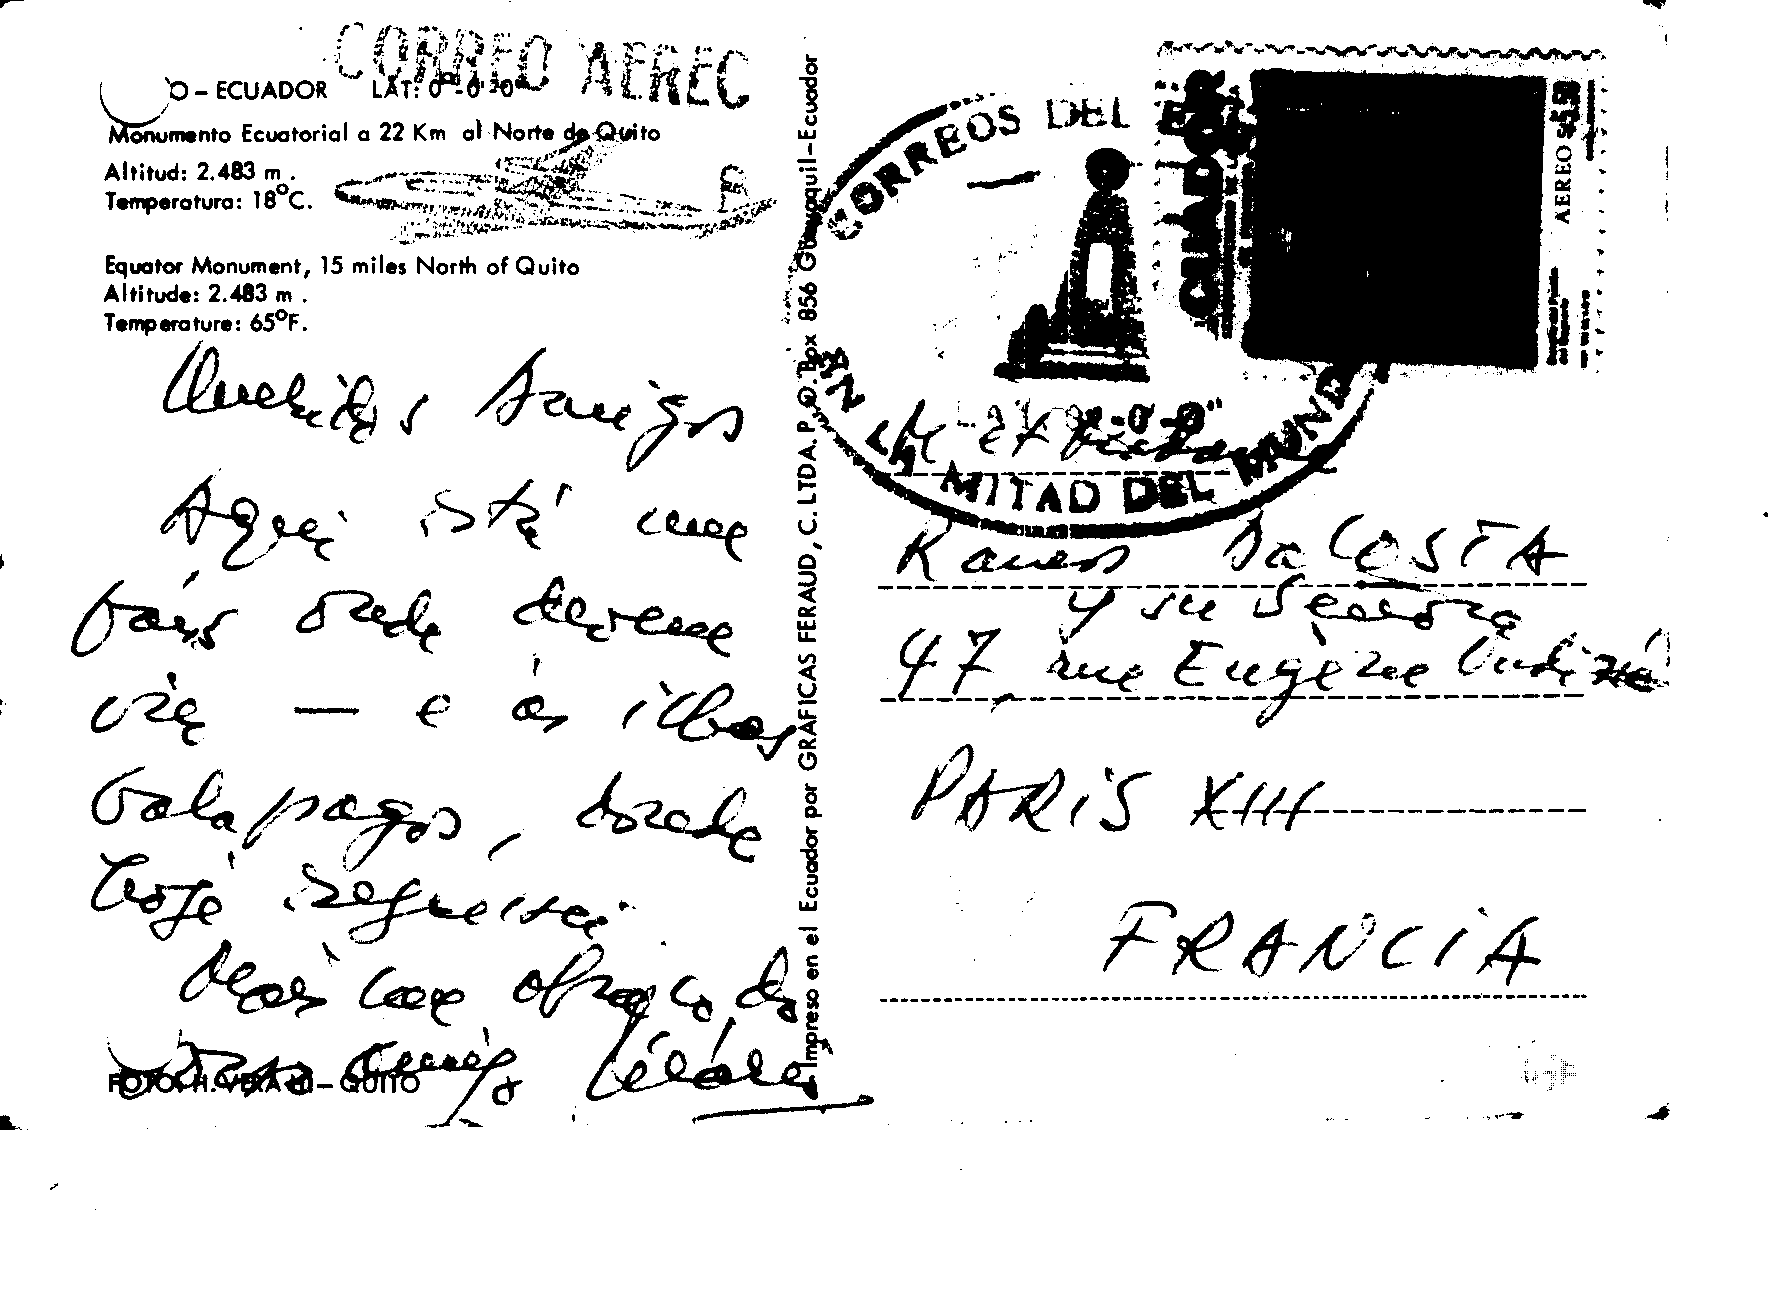 CORREO AEREO
O – ECUADOR LAT: 0°-0'-0"
Monumento Ecuatorial a 22 Km al Norte de Quito
Altitud: 2.483 m .
Temperatura: 18°C.
Equator Monument, 15 miles North of Quito
Altitude: 2.483 m .
Temperature: 65°F.
Queridos Amigos
Aqui está um
país onde
— e as ilhas
Galapagos, donde
hoje regressei
Mais um abraço do
FOTO: H. – QUITO
Impreso en el Ecuador por GRÁFICAS FERAUD, C. LTDA. P. O. Box 856 Guayaquil–Ecuador
CORREOS DEL
EN LA MITAD DEL MUNDO
ECUADOR
AEREO
Ramos DaCOSTA
y su Señora
47, rue Eugène Oudiné
PARIS XIII
FRANCIA